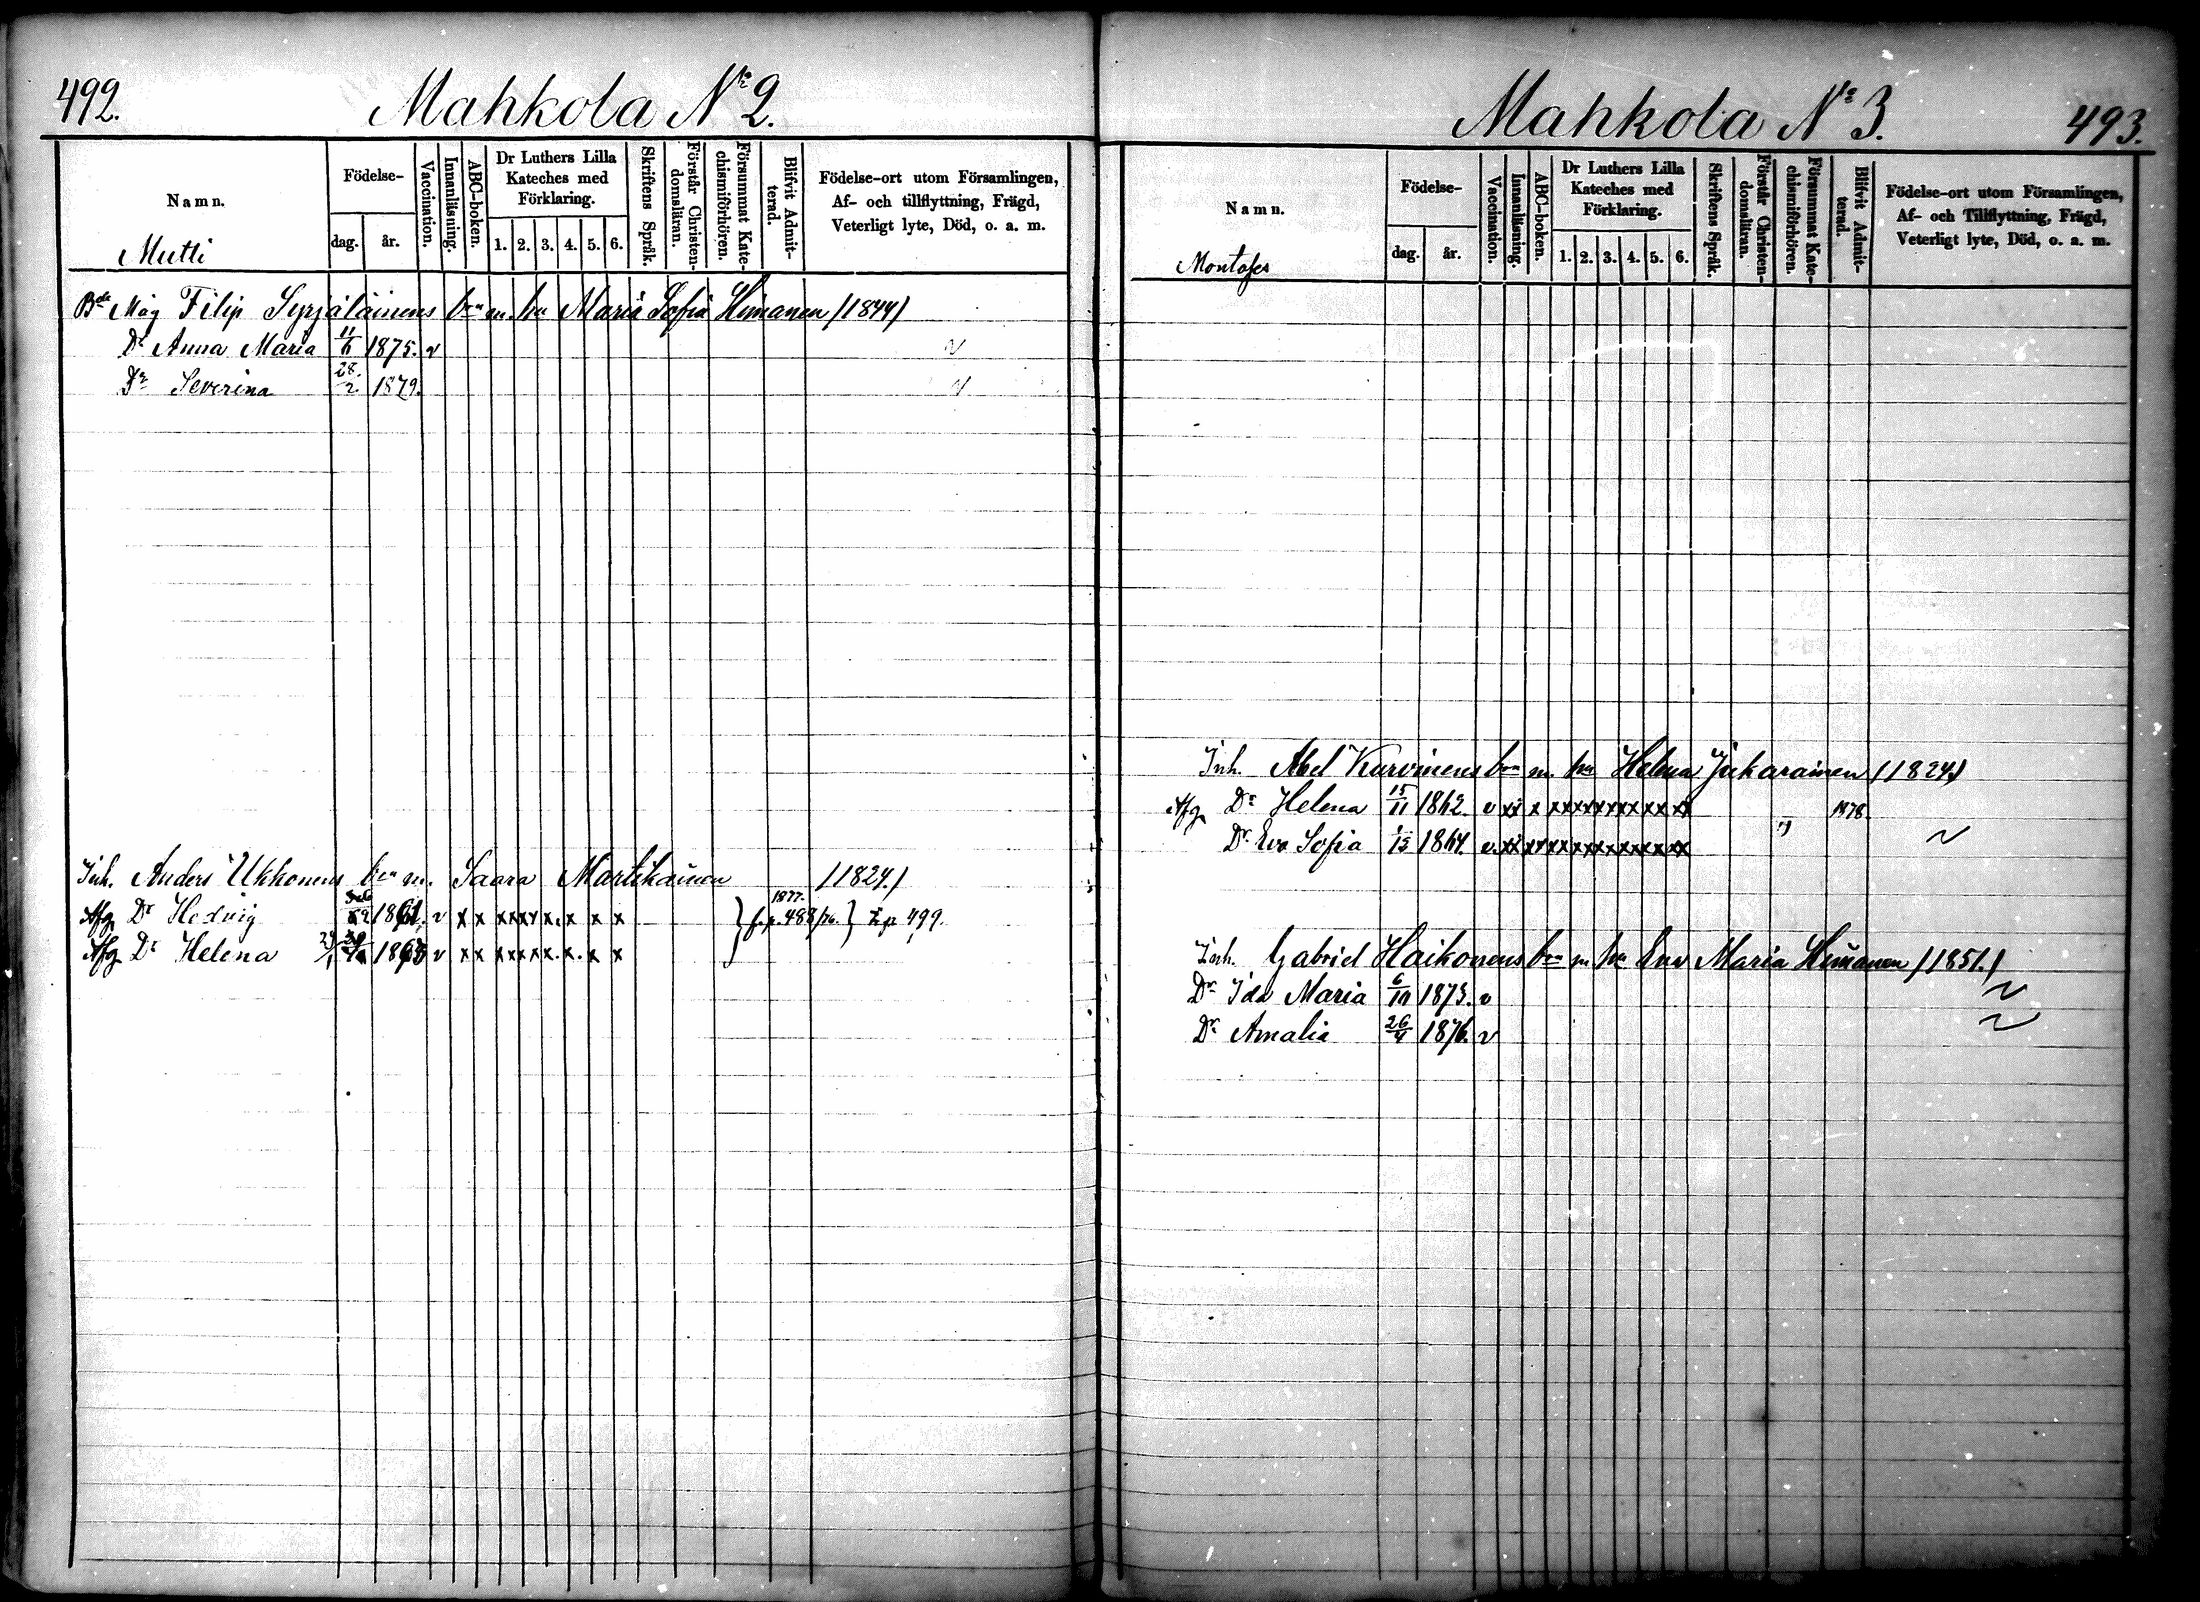 492.
Mahkola No 2.
Namn.
Födelse-
dag.
år.
Vaccination.
Innanläsning.
ABC-boken.
Dr Luthers Lilla
Kateches med
Förklaring.
1. 2. 3. 4. 5. 6.
Skriftens Språk.
Förstår Christen-
domsläran.
Försummat Kate-
chismiförhören.
Blifvit Admit-
terad.
Födelse-ort utom Församlingen,
Af- och tillflyttning, Frägd,
Veterligt lyte, Död, o. a. m.
Mutti
Måg Filip Syrjäläinens bn m. hu Maria Sofia Himanen (1844)
Dr Anna Maria 11/6 1875. v
Dr Severina 28./2. 1879.
Inh. Anders Ukkonens bn m. Saara Martikainen (1824.)
Afg Dr Hedvig 1861. v x x x x x x x. x x x 1877. f. p. 488/76. t. p. 499.
Afg Dr Helena 1863 v x x x x x x x. x. x x
Mahkola No 3.
493.
Namn.
Födelse-
dag.
år.
Vaccination.
Innanläsning.
ABC-boken.
Dr Luthers Lilla
Kateches med
Förklaring.
1. 2. 3. 4. 5. 6.
Skriftens Språk.
Förstår Christen-
domsläran.
Försummat Kate-
chismiförhören.
Blifvit Admit-
terad.
Födelse-ort utom Församlingen,
Af- och Tillflyttning, Frägd,
Veterligt lyte, Död, o. a. m.
Inh. Abel Kurvinens bn m. hu Helena Jukarainen (1824)
Afg Dr Helena 15/11 1862. v xx x xxxxxxxxxx xx 1878.
Dr Eva Sofia 1864. v. xx xxxxxxxxxxxx xx
Inh. Gabriel Haikonens bn m hu Eva Maria Himanen (1851.)
Dr Ida Maria 6/10 1873. v
Dr Amalia 26/4 1876. v